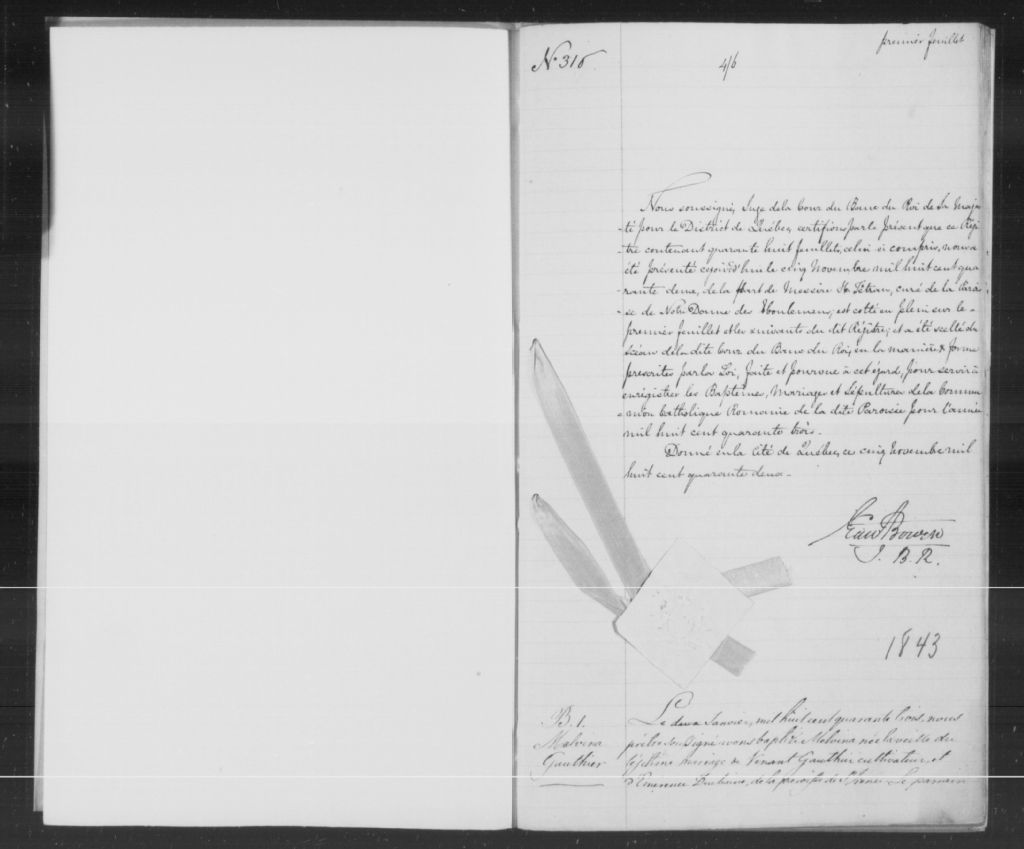 premier feuillet
No 316
4/6
Nous soussigné, Juge de la Cour du Banc du Roi de Sa Majes-
-té pour le District de Québec, certifions par le présent que ce Régi-
-tre contenant quarante huit feuillets, celui ci compris, nous a
été présenté ce jourd'hui le cinq Novembre mil huit cent qua-
-rante deux, de la part de Messire curé de la Paroi-
-se de Notre Dame des Eboulemens, est cotté en plein sur le
premier feuillet et les suivants du dit Régître; et a été scellé du
Sceau de la dite Cour du Banc du Roi, en la manière & forme
prescrites par la Loi, faite et pourvue à cet égard, pour servir à
enrégistrer les Baptêmes, Mariages et Sépultures de la Commu-
-nion Catholique Romaine de la dite Paroisse pour l'année
mil huit cent quarante trois.
Donné en la Cité de Québec, ce cinq Novembre mil
huit cent quarante deux.
Edw Bowen
J. B. R.
1843
B. 1.
Malvina
Gauthier
Le deux Janvier, mil huit cent quarante trois, nous
prêtre soussigné avons baptizé Malvina née la veille du
légitime mariage de Venant Gauthier cultivateur, et
d'Emerence de la paroisse de Le parrain